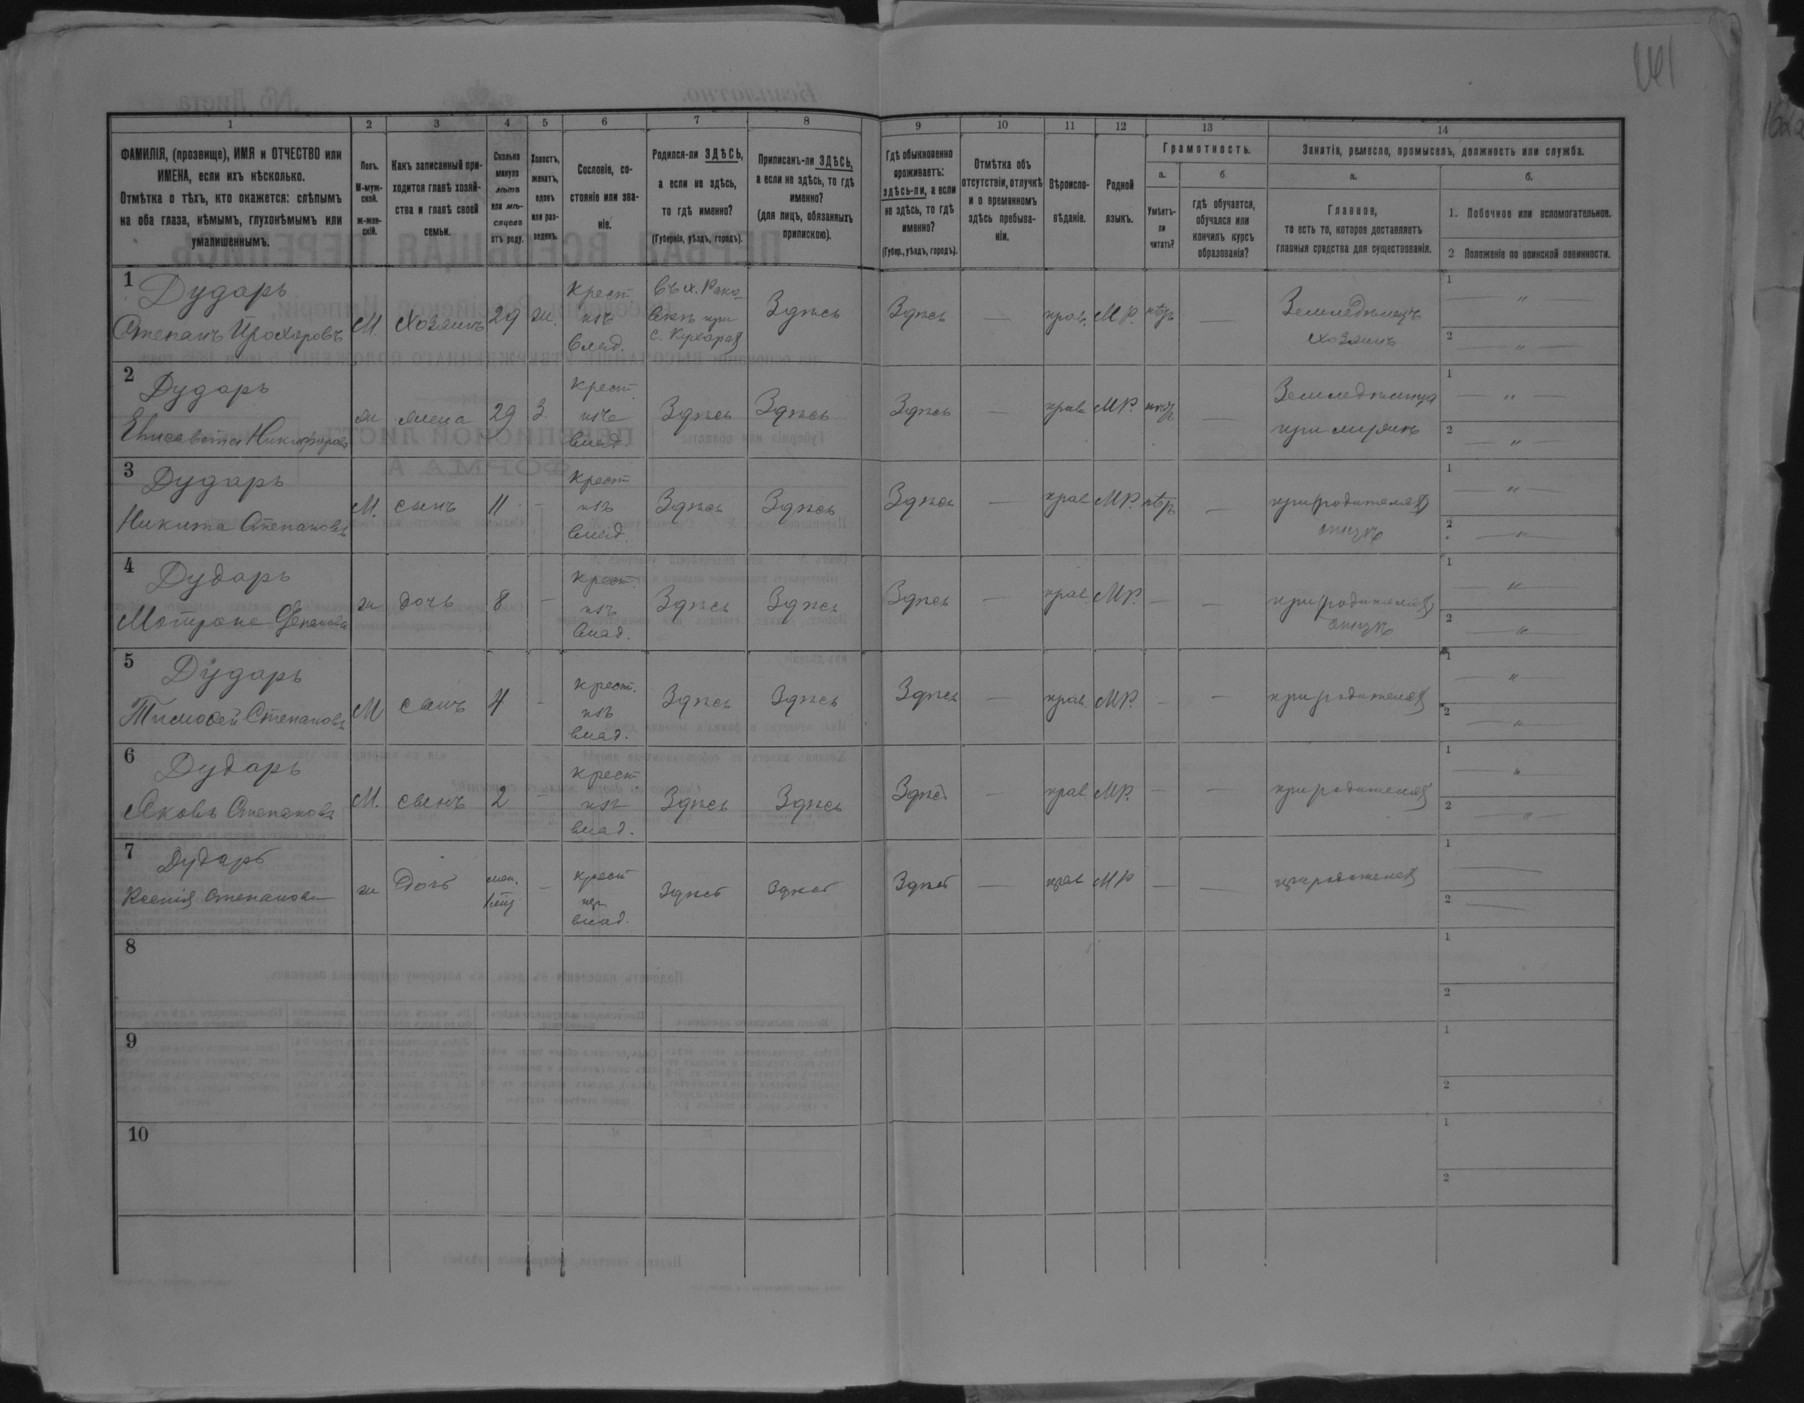 1 2 3 4 5 6 7 8 9 10 11 12 13 14
ФАМИЛІЯ, (прозвище), ИМЯ и ОТЧЕСТВО или
ИМЕНА, если ихъ нѣсколько.
Отмѣтка о тѣхъ, кто окажется: слѣпымъ
на оба глаза, нѣмымъ, глухонѣмымъ или
умалишеннымъ.
Полъ.
М-муж-
ской.
ж-жен-
скій.
Какъ записанный при-
ходится главѣ хозяй-
ства и главѣ своей
семьи.
Сколько
минуло
лѣтъ
или мѣ-
сяцевъ
отъ роду.
Холостъ,
женатъ,
вдовъ
или раз-
веденъ.
Сословіе, со-
стояніе или зва-
ніе.
Родился-ли ЗДѢСЬ,
а если не здѣсь,
то гдѣ именно?
(Губернія, уѣздъ, городъ).
Приписанъ-ли ЗДѢСЬ,
а если не здѣсь, то гдѣ
именно?
(для лицъ, обязанныхъ
припискою).
Гдѣ обыкновенно
проживаетъ:
здѣсь-ли, а если
не здѣсь, то гдѣ
именно?
(Губер., уѣздъ, городъ).
Отмѣтка объ
отсутствіи, отлучкѣ
и о временномъ
здѣсь пребыва-
ніи.
Вѣроиспо-
вѣданіе.
Родной
языкъ.
Грамотность.
а.
Умѣетъ-
ли
читать?
б.
гдѣ обучается,
обучался или
кончилъ курсъ
образованія?
Занятія, ремесло, промыселъ, должность или служба.
а.
Главное,
то есть то, которое доставляетъ
главныя средства для существованія.
б.
1. Побочное или вспомогательное.
2 Положеніе по воинской повинности.
1 Дударь
Степанъ Прохоровъ М. хозяинъ 29 ж. Крест. изъ влад. Здѣсь Здѣсь — прав. МР. нѣтъ — Земледѣлецъ
хозяинъ
1 — „ —
2 — „ —
2 Дударь
Елисавета Никифорова ж жена 29 З. Крест. изъ влад. Здѣсь Здѣсь Здѣсь — прав. МР. нѣтъ — Земледѣлица
при мужѣ
1 — „ —
2 — „ —
3 Дударь
Никита Степановъ М. сынъ 11 - Крест. изъ влад. Здѣсь Здѣсь Здѣсь — прав МР. нѣтъ — при родителяхъ
1 — „ —
2 — „ —
4 Дударь
Матрона Степанова ж дочь 8 — Крест. изъ влад. Здѣсь Здѣсь Здѣсь — прав МР. — — при родителяхъ
1 — „ —
2 — „ —
5 Дударь
Тимофей Степановъ М сынъ 4 - Крест. изъ влад. Здѣсь Здѣсь Здѣсь — прав МР. — при родителяхъ
1 — „ —
2 — „ —
6 Дударь
Яковъ Степановъ М. сынъ 2 — Крест изъ влад. Здѣсь Здѣсь Здѣсь — прав МР. — — при родителяхъ
1 — „ —
2 — „ —
7 Дударь
Ксенія Степанова ж дочь — крест изъ влад. Здѣсь Здѣсь Здѣсь — прав МР — — при родителяхъ
1 —
2 —
8
1
2
9
1
2
10
1
2